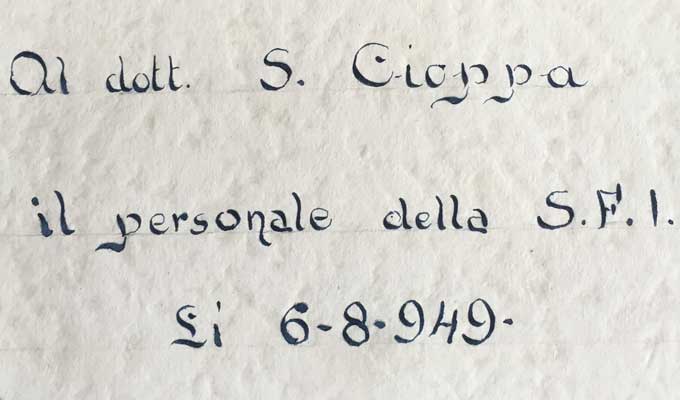 Al dott. S. Cioppa
il personale della S.F.I.
Li 6-8-949-